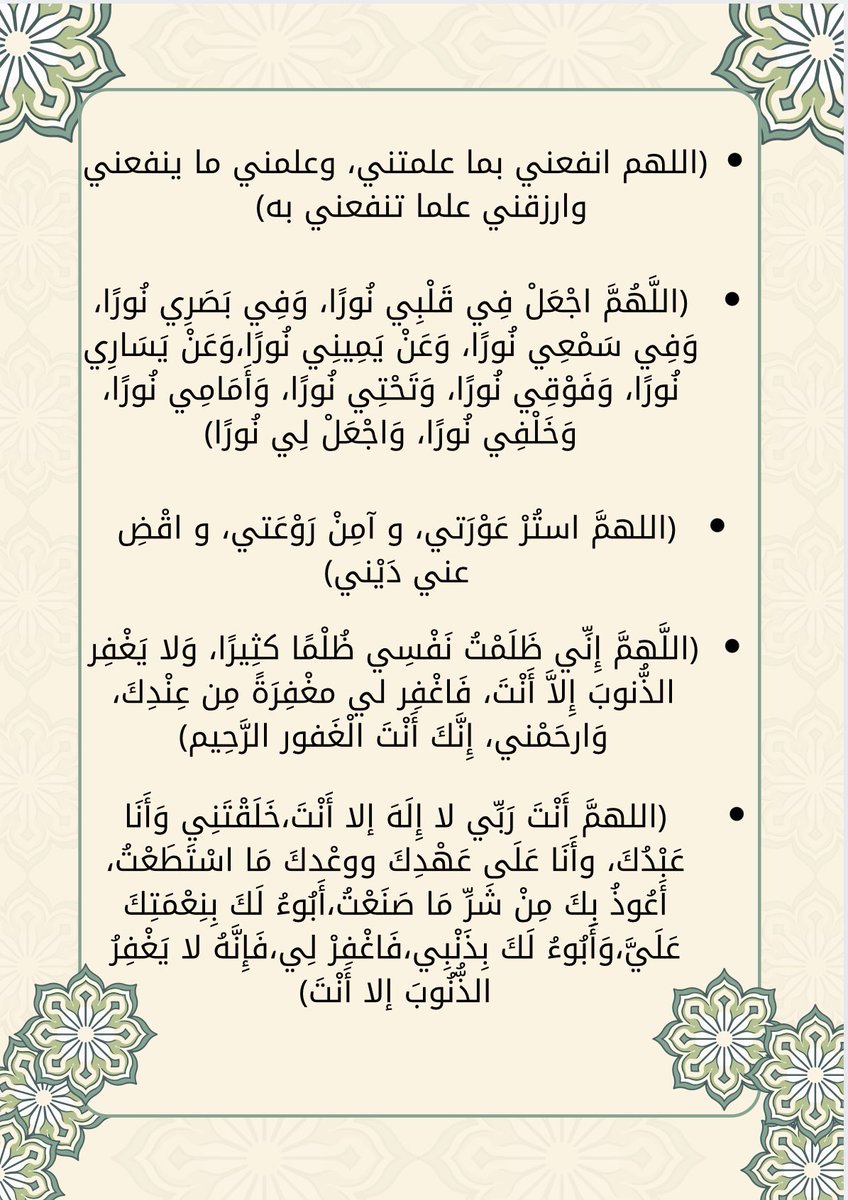 • (اللهم انفعني بما علمتني، وعلمني ما ينفعني
وارزقني علما تنفعني به)
• (اللَّهُمَّ اجْعَلْ فِي قَلْبِي نُورًا، وَفِي بَصَرِي نُورًا،
وَفِي سَمْعِي نُورًا، وَعَنْ يَمِينِي نُورًا،وَعَنْ يَسَارِي
نُورًا، وَفَوْقِي نُورًا، وَتَحْتِي نُورًا، وَأَمَامِي نُورًا،
وَخَلْفِي نُورًا، وَاجْعَلْ لِي نُورًا)
• (اللهمَّ استُرْ عَوْرَتي، و آمِنْ رَوْعَتي، و اقْضِ
عني دَيْني)
• (اللَّهمَّ إِنِّي ظَلَمْتُ نَفْسِي ظُلْمًا كثِيرًا، وَلا يَغْفِر
الذُّنوبَ إِلاَّ أَنْتَ، فَاغْفِر لي مغْفِرَةً مِن عِنْدِكَ،
وَارحَمْني، إِنَّكَ أَنْتَ الْغَفور الرَّحِيم)
• (اللهمَّ أَنْتَ رَبِّي لا إِلَهَ إلا أَنْتَ،خَلَقْتَنِي وَأَنَا
عَبْدُكَ، وأَنَا عَلَى عَهْدِكَ ووعْدكَ مَا اسْتَطَعْتُ،
أَعُوذُ بِكَ مِنْ شَرِّ مَا صَنَعْتُ،أَبُوءُ لَكَ بِنِعْمَتِكَ
عَلَيَّ،وَأَبُوءُ لَكَ بِذَنْبِي،فَاغْفِرْ لِي،فَإِنَّهُ لا يَغْفِرُ
الذُّنُوبَ إلا أَنْتَ)